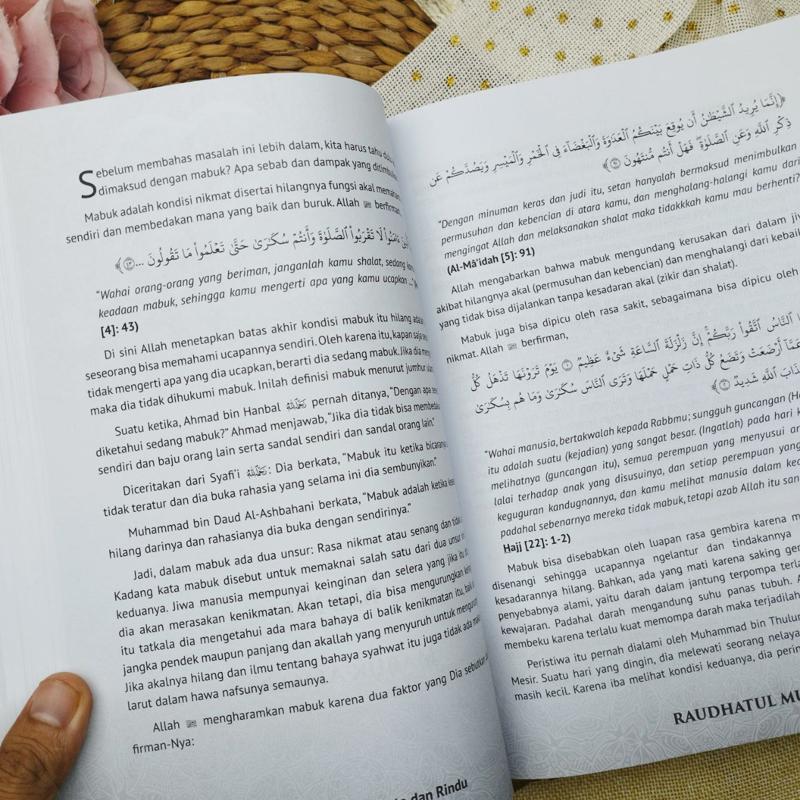 Sebelum membahas masalah ini lebih dalam, kita harus tahu
dimaksud dengan mabuk? Apa sebab dan dampak yang
Mabuk adalah kondisi nikmat disertai hilangnya fungsi akal
sendiri dan membedakan mana yang baik dan buruk. Allah ﷻ berfirman,
ءَامَنُوا۟ لَا تَقْرَبُوا۟ ٱلصَّلَوٰةَ وَأَنتُمْ سُكَـٰرَىٰ حَتَّىٰ تَعْلَمُوا۟ مَا تَقُولُونَ ... ﴿٤٣﴾
"Wahai orang-orang yang beriman, janganlah kamu shalat, sedang
keadaan mabuk, sehingga kamu mengerti apa yang kamu ucapkan ..."
[4]: 43)
Di sini Allah menetapkan batas akhir kondisi mabuk itu hilang
seseorang bisa memahami ucapannya sendiri. Oleh karena itu, kapan saja
tidak mengerti apa yang dia ucapkan, berarti dia sedang mabuk. Jika dia
maka dia tidak dihukumi mabuk. Inilah definisi mabuk menurut jumhur
Suatu ketika, Ahmad bin Hanbal pernah ditanya, "Dengan apa
diketahui sedang mabuk?" Ahmad menjawab, "Jika dia tidak bisa
sendiri dan baju orang lain serta sandal sendiri dan sandal orang lain."
Diceritakan dari Syafi'i : Dia berkata, "Mabuk itu ketika
tidak teratur dan dia buka rahasia yang selama ini dia sembunyikan."
Muhammad bin Daud Al-Ashbahani berkata, "Mabuk adalah ketika
hilang darinya dan rahasianya dia buka dengan sendirinya."
Jadi, dalam mabuk ada dua unsur: Rasa nikmat atau senang dan
Kadang kata mabuk disebut untuk memaknai salah satu dari dua unsur
keduanya. Jiwa manusia mempunyai keinginan dan selera yang jika itu
dia akan merasakan kenikmatan. Akan tetapi, dia bisa mengurungkan
itu tatkala dia mengetahui ada mara bahaya di balik kenikmatan itu,
jangka pendek maupun panjang dan akallah yang menyuruh untuk
Jika akalnya hilang dan ilmu tentang bahaya syahwat itu juga tidak ada
larut dalam hawa nafsunya semaunya.
Allah ﷻ mengharamkan mabuk karena dua faktor yang Dia sebutkan
firman-Nya:
dan Rindu
﴿إِنَّمَا يُرِيدُ ٱلشَّيْطَـٰنُ أَن يُوقِعَ بَيْنَكُمُ ٱلْعَدَٰوَةَ وَٱلْبَغْضَآءَ فِى ٱلْخَمْرِ وَٱلْمَيْسِرِ وَيَصُدَّكُمْ عَن
ذِكْرِ ٱللَّهِ وَعَنِ ٱلصَّلَوٰةِ ۖ فَهَلْ أَنتُم مُّنتَهُونَ ﴿٩١﴾
"Dengan minuman keras dan judi itu, setan hanyalah bermaksud menimbulkan
permusuhan dan kebencian di atara kamu, dan menghalang-halangi kamu dari
mengingat Allah dan melaksanakan shalat maka tidakkkah kamu mau berhenti?
(Al-Mâ'idah [5]: 91)
Allah mengabarkan bahwa mabuk mengundang kerusakan dari dalam
akibat hilangnya akal (permusuhan dan kebencian) dan menghalangi dari
yang tidak bisa dijalankan tanpa kesadaran akal (zikir dan shalat).
Mabuk juga bisa dipicu oleh rasa sakit, sebagaimana bisa dipicu oleh
nikmat. Allah ﷻ berfirman,
ٱلنَّاسُ ٱتَّقُوا۟ رَبَّكُمْ ۚ إِنَّ زَلْزَلَةَ ٱلسَّاعَةِ شَىْءٌ عَظِيمٌ ﴿١﴾ يَوْمَ تَرَوْنَهَا تَذْهَلُ كُلُّ
عَمَّآ أَرْضَعَتْ وَتَضَعُ كُلُّ ذَاتِ حَمْلٍ حَمْلَهَا وَتَرَى ٱلنَّاسَ سُكَـٰرَىٰ وَمَا هُم بِسُكَـٰرَىٰ
عَذَابَ ٱللَّهِ شَدِيدٌ ﴿٢﴾
"Wahai manusia, bertakwalah kepada Rabbmu; sungguh guncangan
itu adalah suatu (kejadian) yang sangat besar. (Ingatlah) pada hari
melihatnya (guncangan itu), semua perempuan yang menyusui
lalai terhadap anak yang disusuinya, dan setiap perempuan yang
keguguran kandugnannya, dan kamu melihat manusia dalam
padahal sebenarnya mereka tidak mabuk, tetapi azab Allah itu
Hajj [22]: 1-2)
Mabuk bisa disebabkan oleh luapan rasa gembira karena
disenangi sehingga ucapannya ngelantur dan tindakannya
kesadarannya hilang. Bahkan, ada yang mati karena saking
penyebabnya alami, yaitu darah dalam jantung terpompa
kewajaran. Padahal darah mengandung suhu panas tubuh.
membeku karena terlalu kuat memompa darah maka terjadilah
Peristiwa itu pernah dialami oleh Muhammad bin
Mesir. Suatu hari yang dingin, dia melewati seorang
masih kecil. Karena iba melihat kondisi keduanya, dia
RAUDHATUL